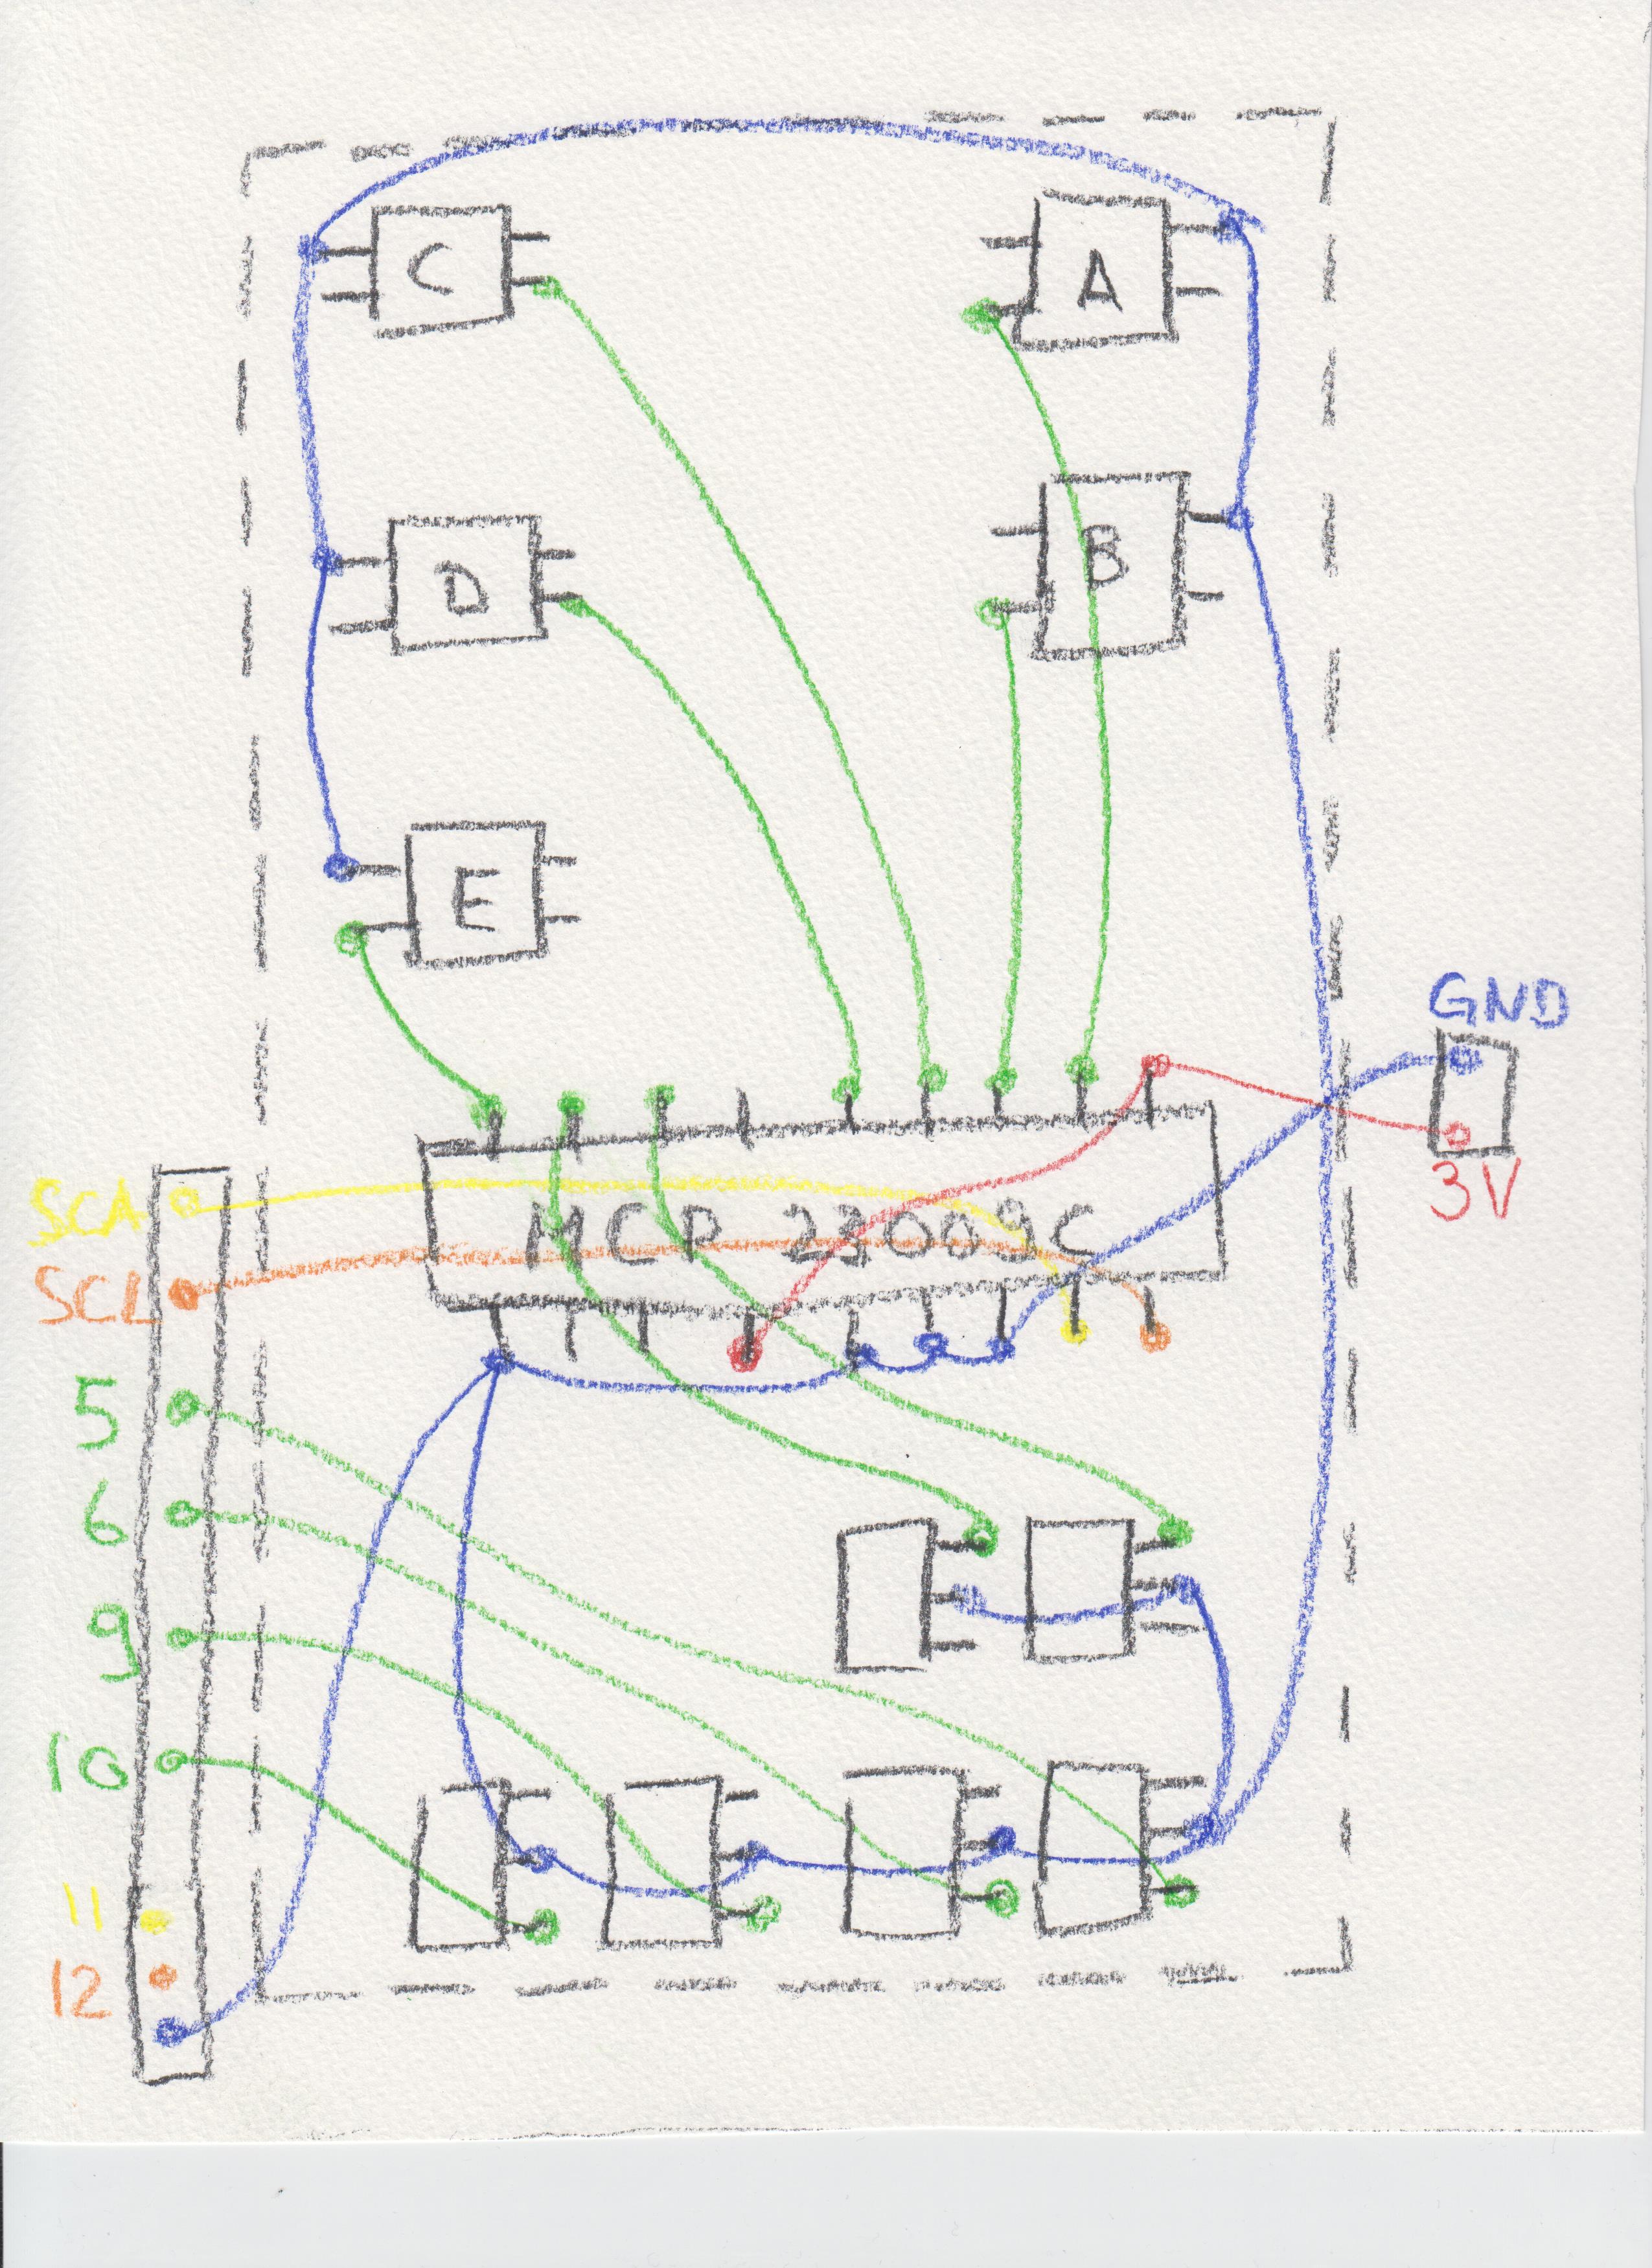 C
A
D
B
E
GND
3V
MCP 23009C
SCA
SCL
5
6
9
10
11
12